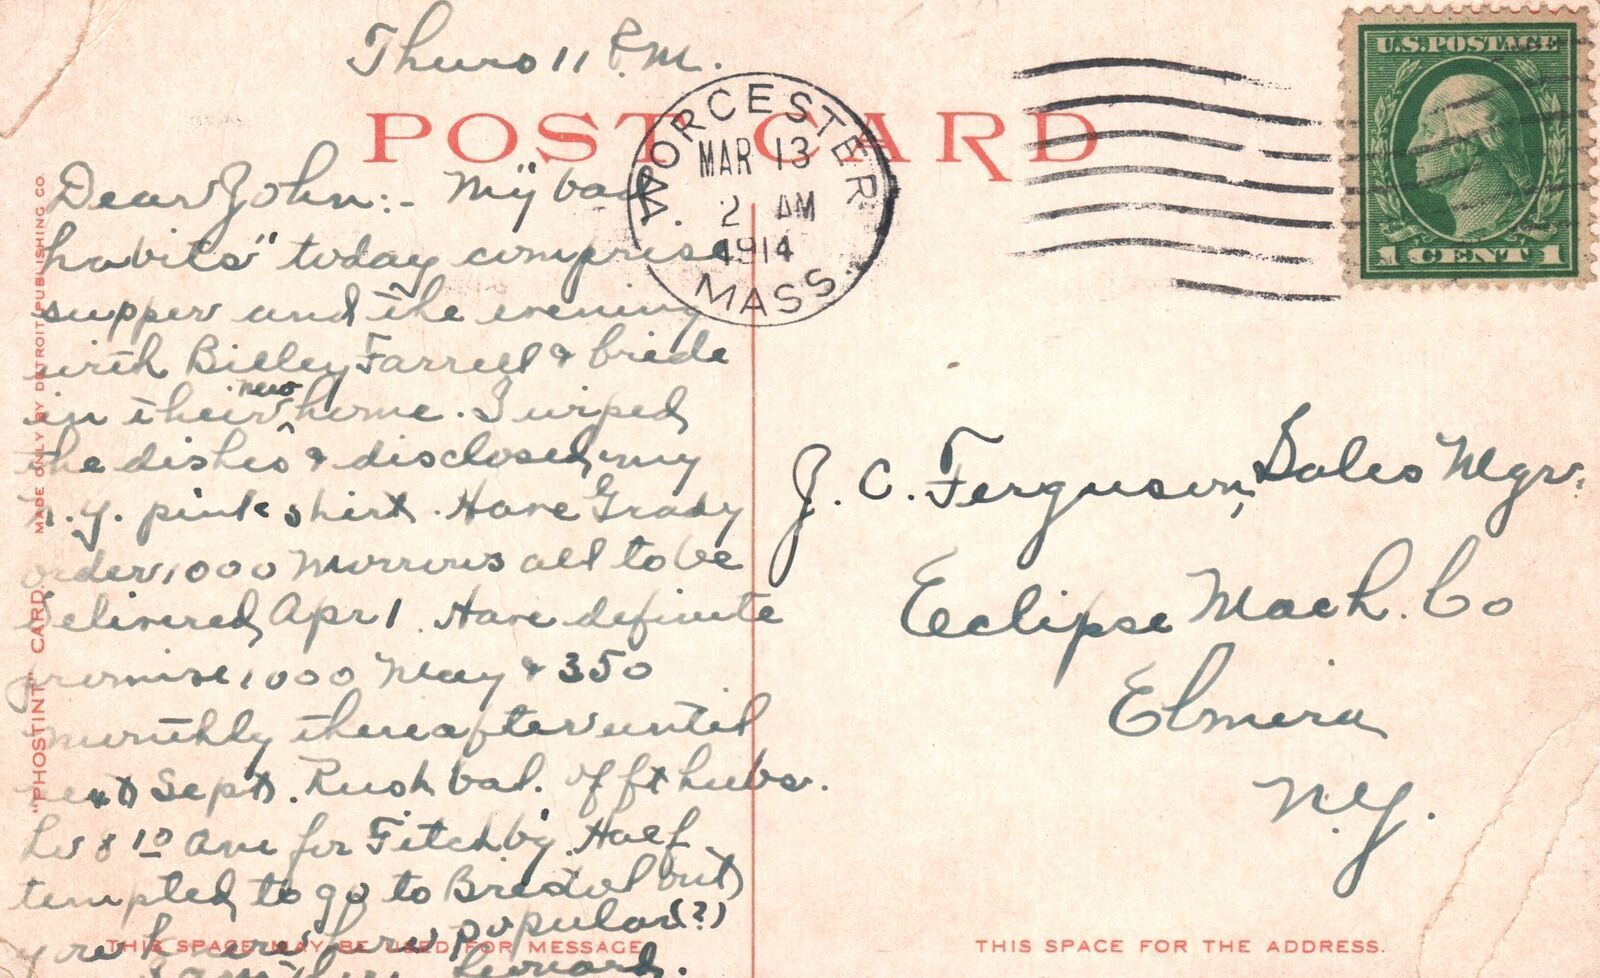 Thurs 11 P.M.
POST CARD
WORCESTER
MAR 13
2 AM
1914
MASS.
U.S. POSTAGE
1 CENT 1
Dear John:- "My bad
habits" today comprise
supper and the evening
with Billey Farrell & bride
in their new home. I wiped
the dishes & disclosed my
N.Y. pink shirt. Have Grady
order 1000 Morrows all to be
delivered Apr 1. Have definite
promise 1000 May & &350
monthly thereafter until
next Sept. Rush bal. of ft hubs.
Lv 8 10 Am for Fitchb'g. Half
tempted to go to Bristol but
you know how popular (?)
I am there Leonard.
J. C. Ferguson, Sales Mgr.
Eclipse Mach. Co
Elmira
N.Y.
"PHOSTINT" CARD MADE ONLY BY DETROIT PUBLISHING CO.
THIS SPACE MAY BE USED FOR MESSAGE
THIS SPACE FOR THE ADDRESS.